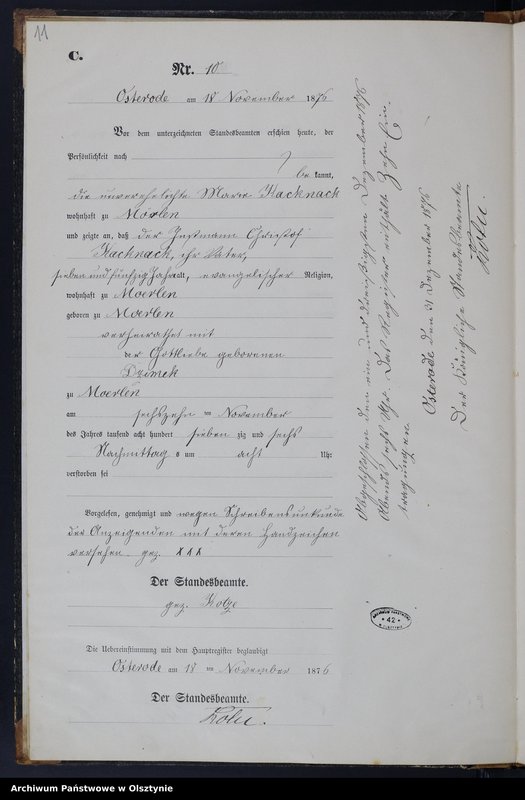 11
C.
Nr. 10
Osterode am 18 November 1876
Vor dem unterzeichneten Standesbeamten erschien heute, der
Persönlichkeit nach
be kannt,
die unverehelichte Marie Kacknack
wohnhaft zu Moerlen
und zeigte an, daß der Instmann Christof
Kacknack, ihr Vater,
sieben und fünfzig Jahre alt, evangelischer Religion,
wohnhaft zu Moerlen
geboren zu Moerlen
verheirathet mit
der Gottliebe geborenen
Dzimek
zu Moerlen
am sechszehn ten November
des Jahres tausend acht hundert sieben zig und sechs
Nachmittag s um acht Uhr
verstorben sei
Vorgelesen, genehmigt und wegen Schreibensunkunde
der Anzeigenden mit deren Handzeichen
versehen. gez. XXX
Der Standesbeamte.
gez.
Die Uebereinstimmung mit dem Hauptregister beglaubigt
Osterode am 18 ten November 1876
Der Standesbeamte.
Abgeschlossen den ein und dreißigsten Dezember 1876
Abends sechs Uhr. Das Register enthält Zehn Ein-
tragungen
Osterode den 31 Dezember 1876
Der Königliche Standesbeamte
42
Archiwum Państwowe w Olsztynie